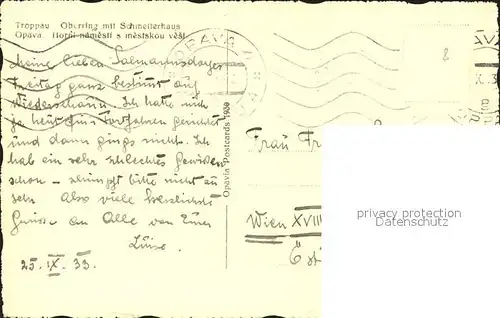 Troppau Oberring mit Schmetterhaus
Opava. Horní náměstí s městskou věží
OPAVA
Meine lieben Salmannsdorfer
Freitag ganz bestimmt auf
Wiederschaun. Ich hatte mich
ja heut für's Fortfahren gerichtet
und dann gings nicht. Ich
hab ein sehr schlechtes Gewissen
schon – schimpft bitte nicht zu
sehr. Also viele herzlichste
Grüsse an Alle von Eurer
Luise.
25. IX. 33.
Opavia Postcards 1930
Frau Fr
Wien XVIII
privacy protection
Datenschutz